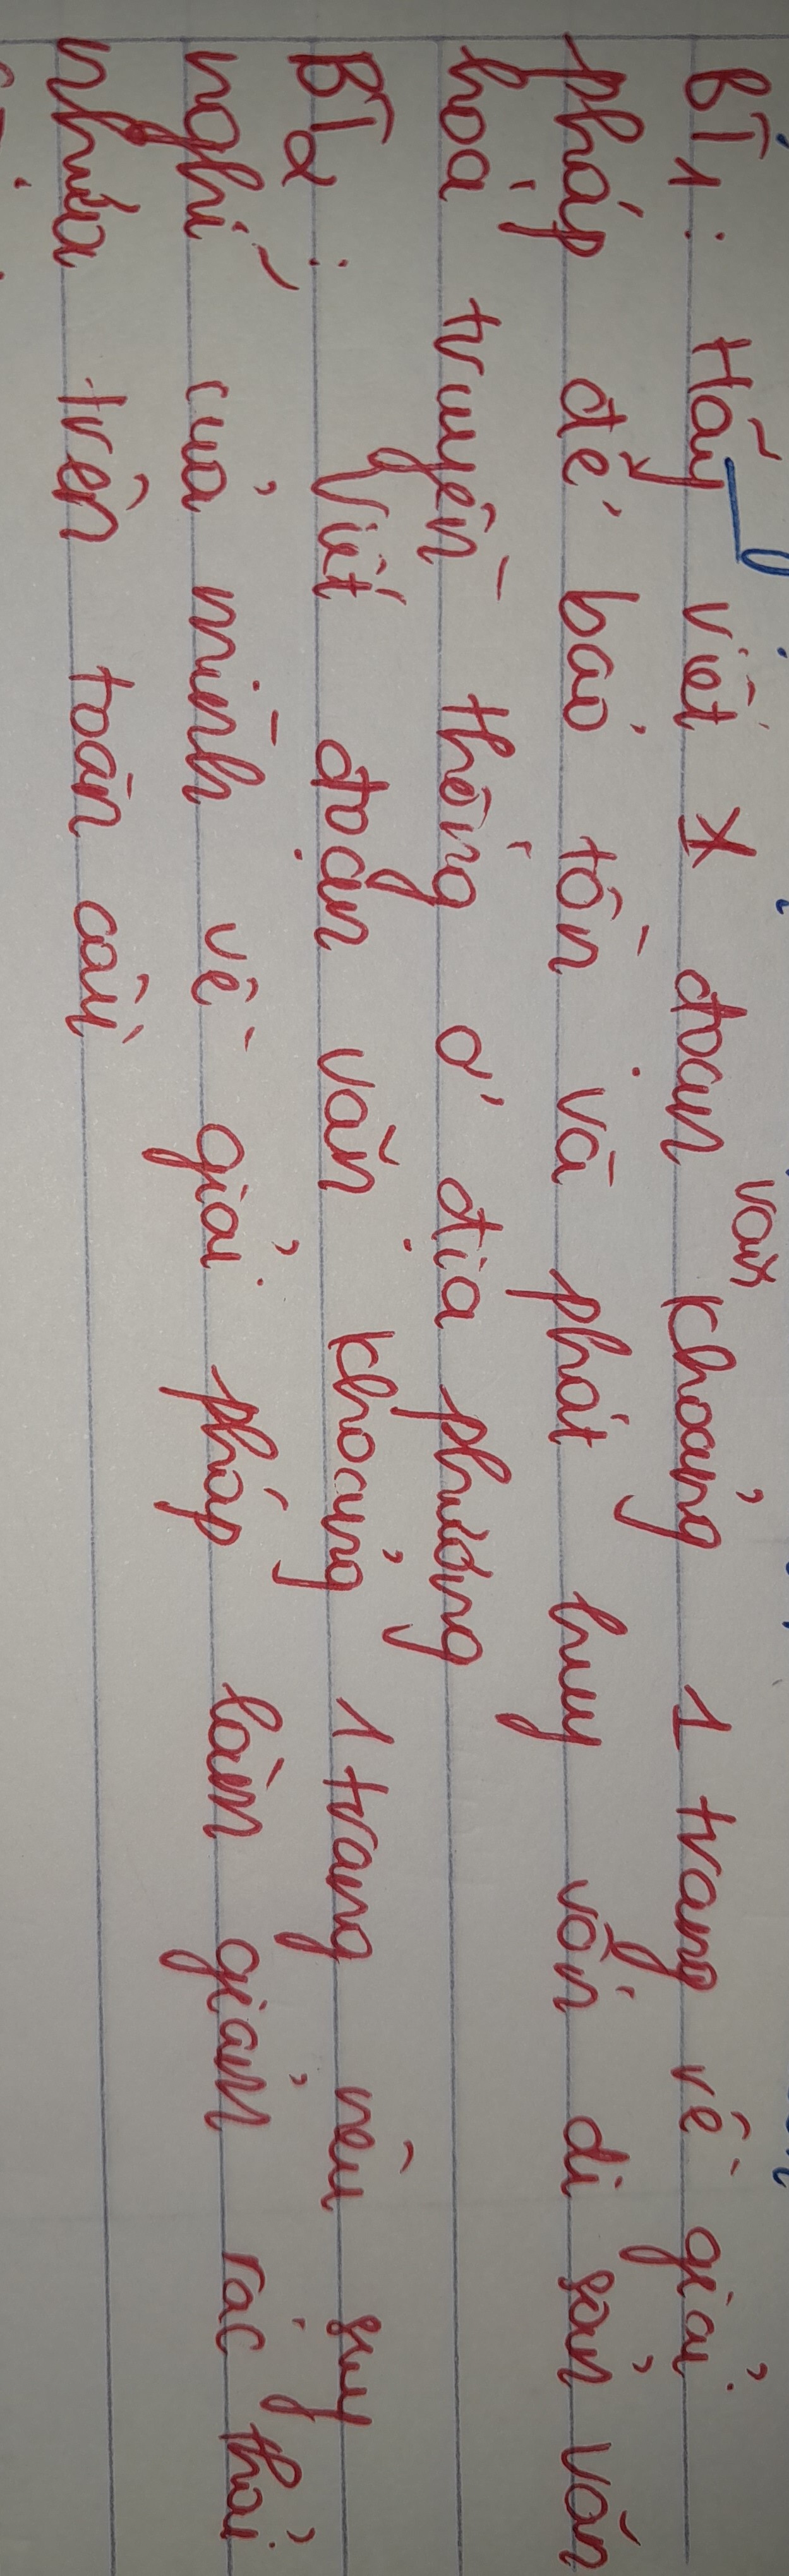 BT1: Hãy viết 1 đoạn văn khoảng 1 trang về giải
pháp để bảo tồn và phát huy vốn di sản văn
hoá truyền thống ở địa phương
BT2: Viết đoạn văn khoảng 1 trang nêu suy
nghĩ của mình về giải pháp làm giảm rác thải
nhựa trên toàn cầu